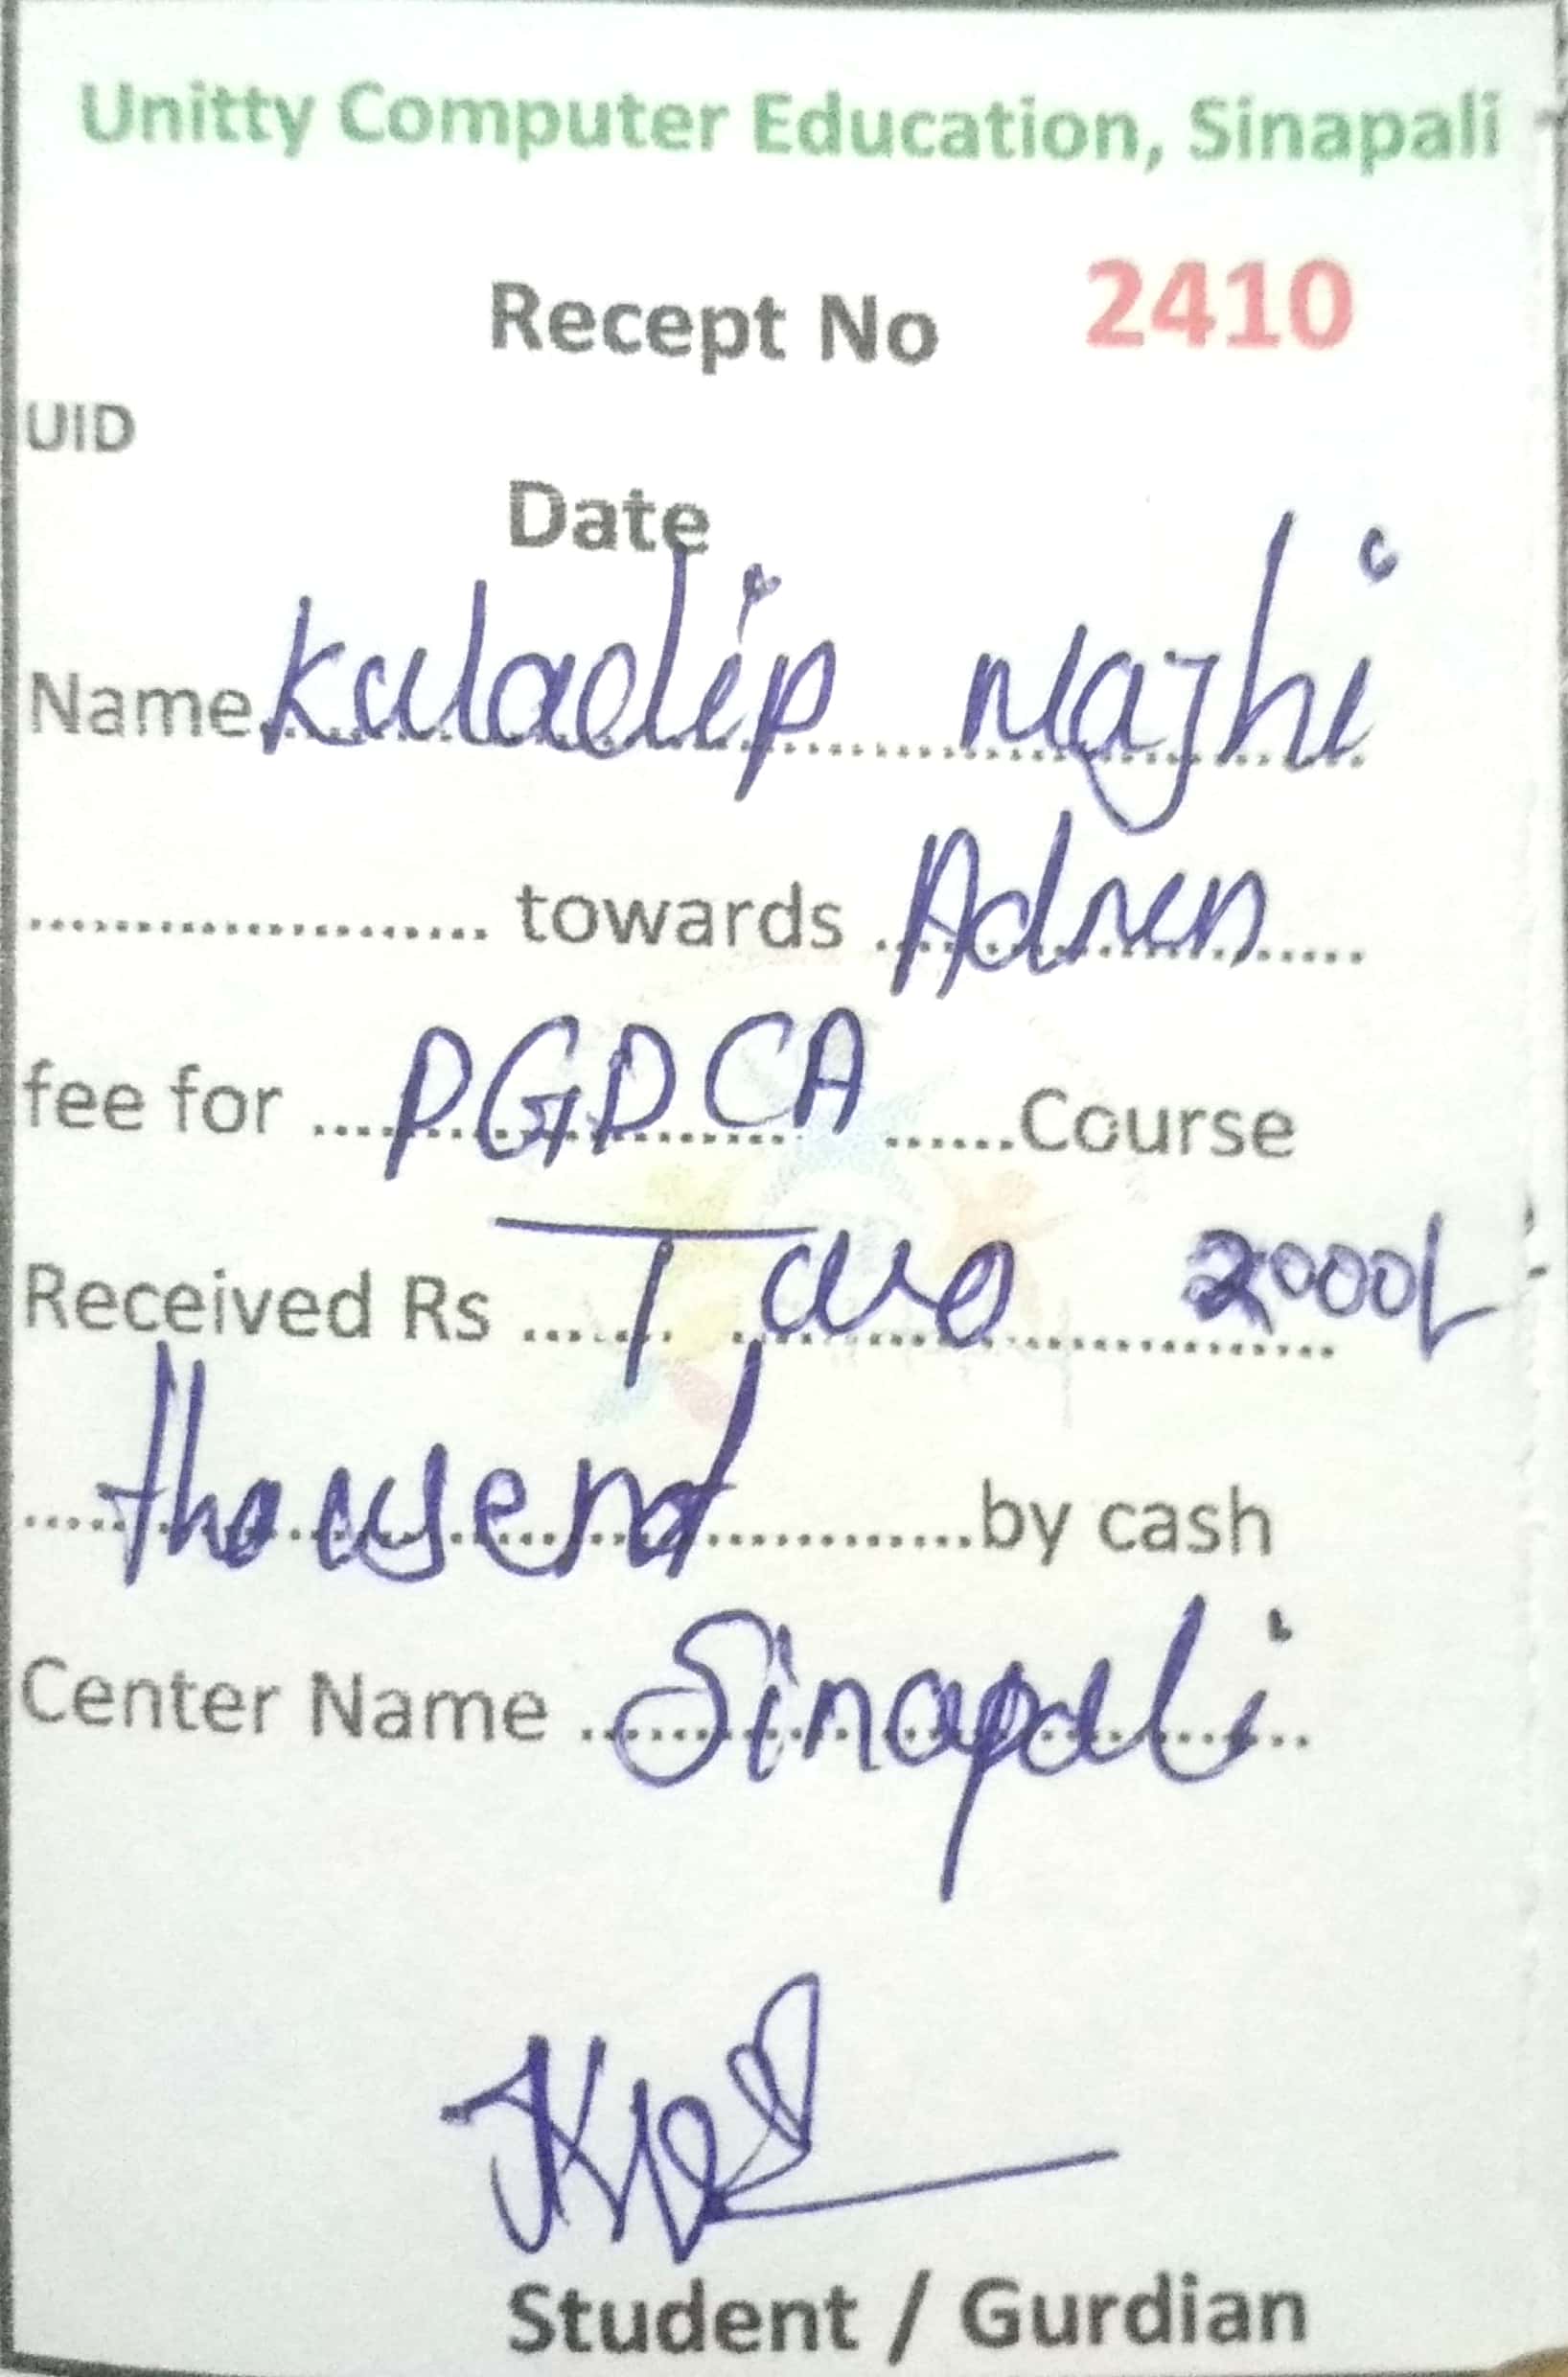 Unitty Computer Education, Sinapali
Recept No 2410
UID
Date
Name Kuladip Majhi
towards Admn
fee for PGDCA Course
Received Rs Two 2000/-
thousend by cash
Center Name Sinapali
Student / Gurdian